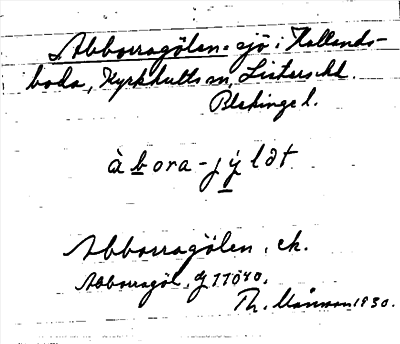 Abborragölen. sjö i Hallands-
boda, Kyrkhults sn, Listers hd.
Blekinge l.
àbora-jỳlət
Abborragölen, ek.
Abborragöl, GTT040.
Th. Månsson 1930.